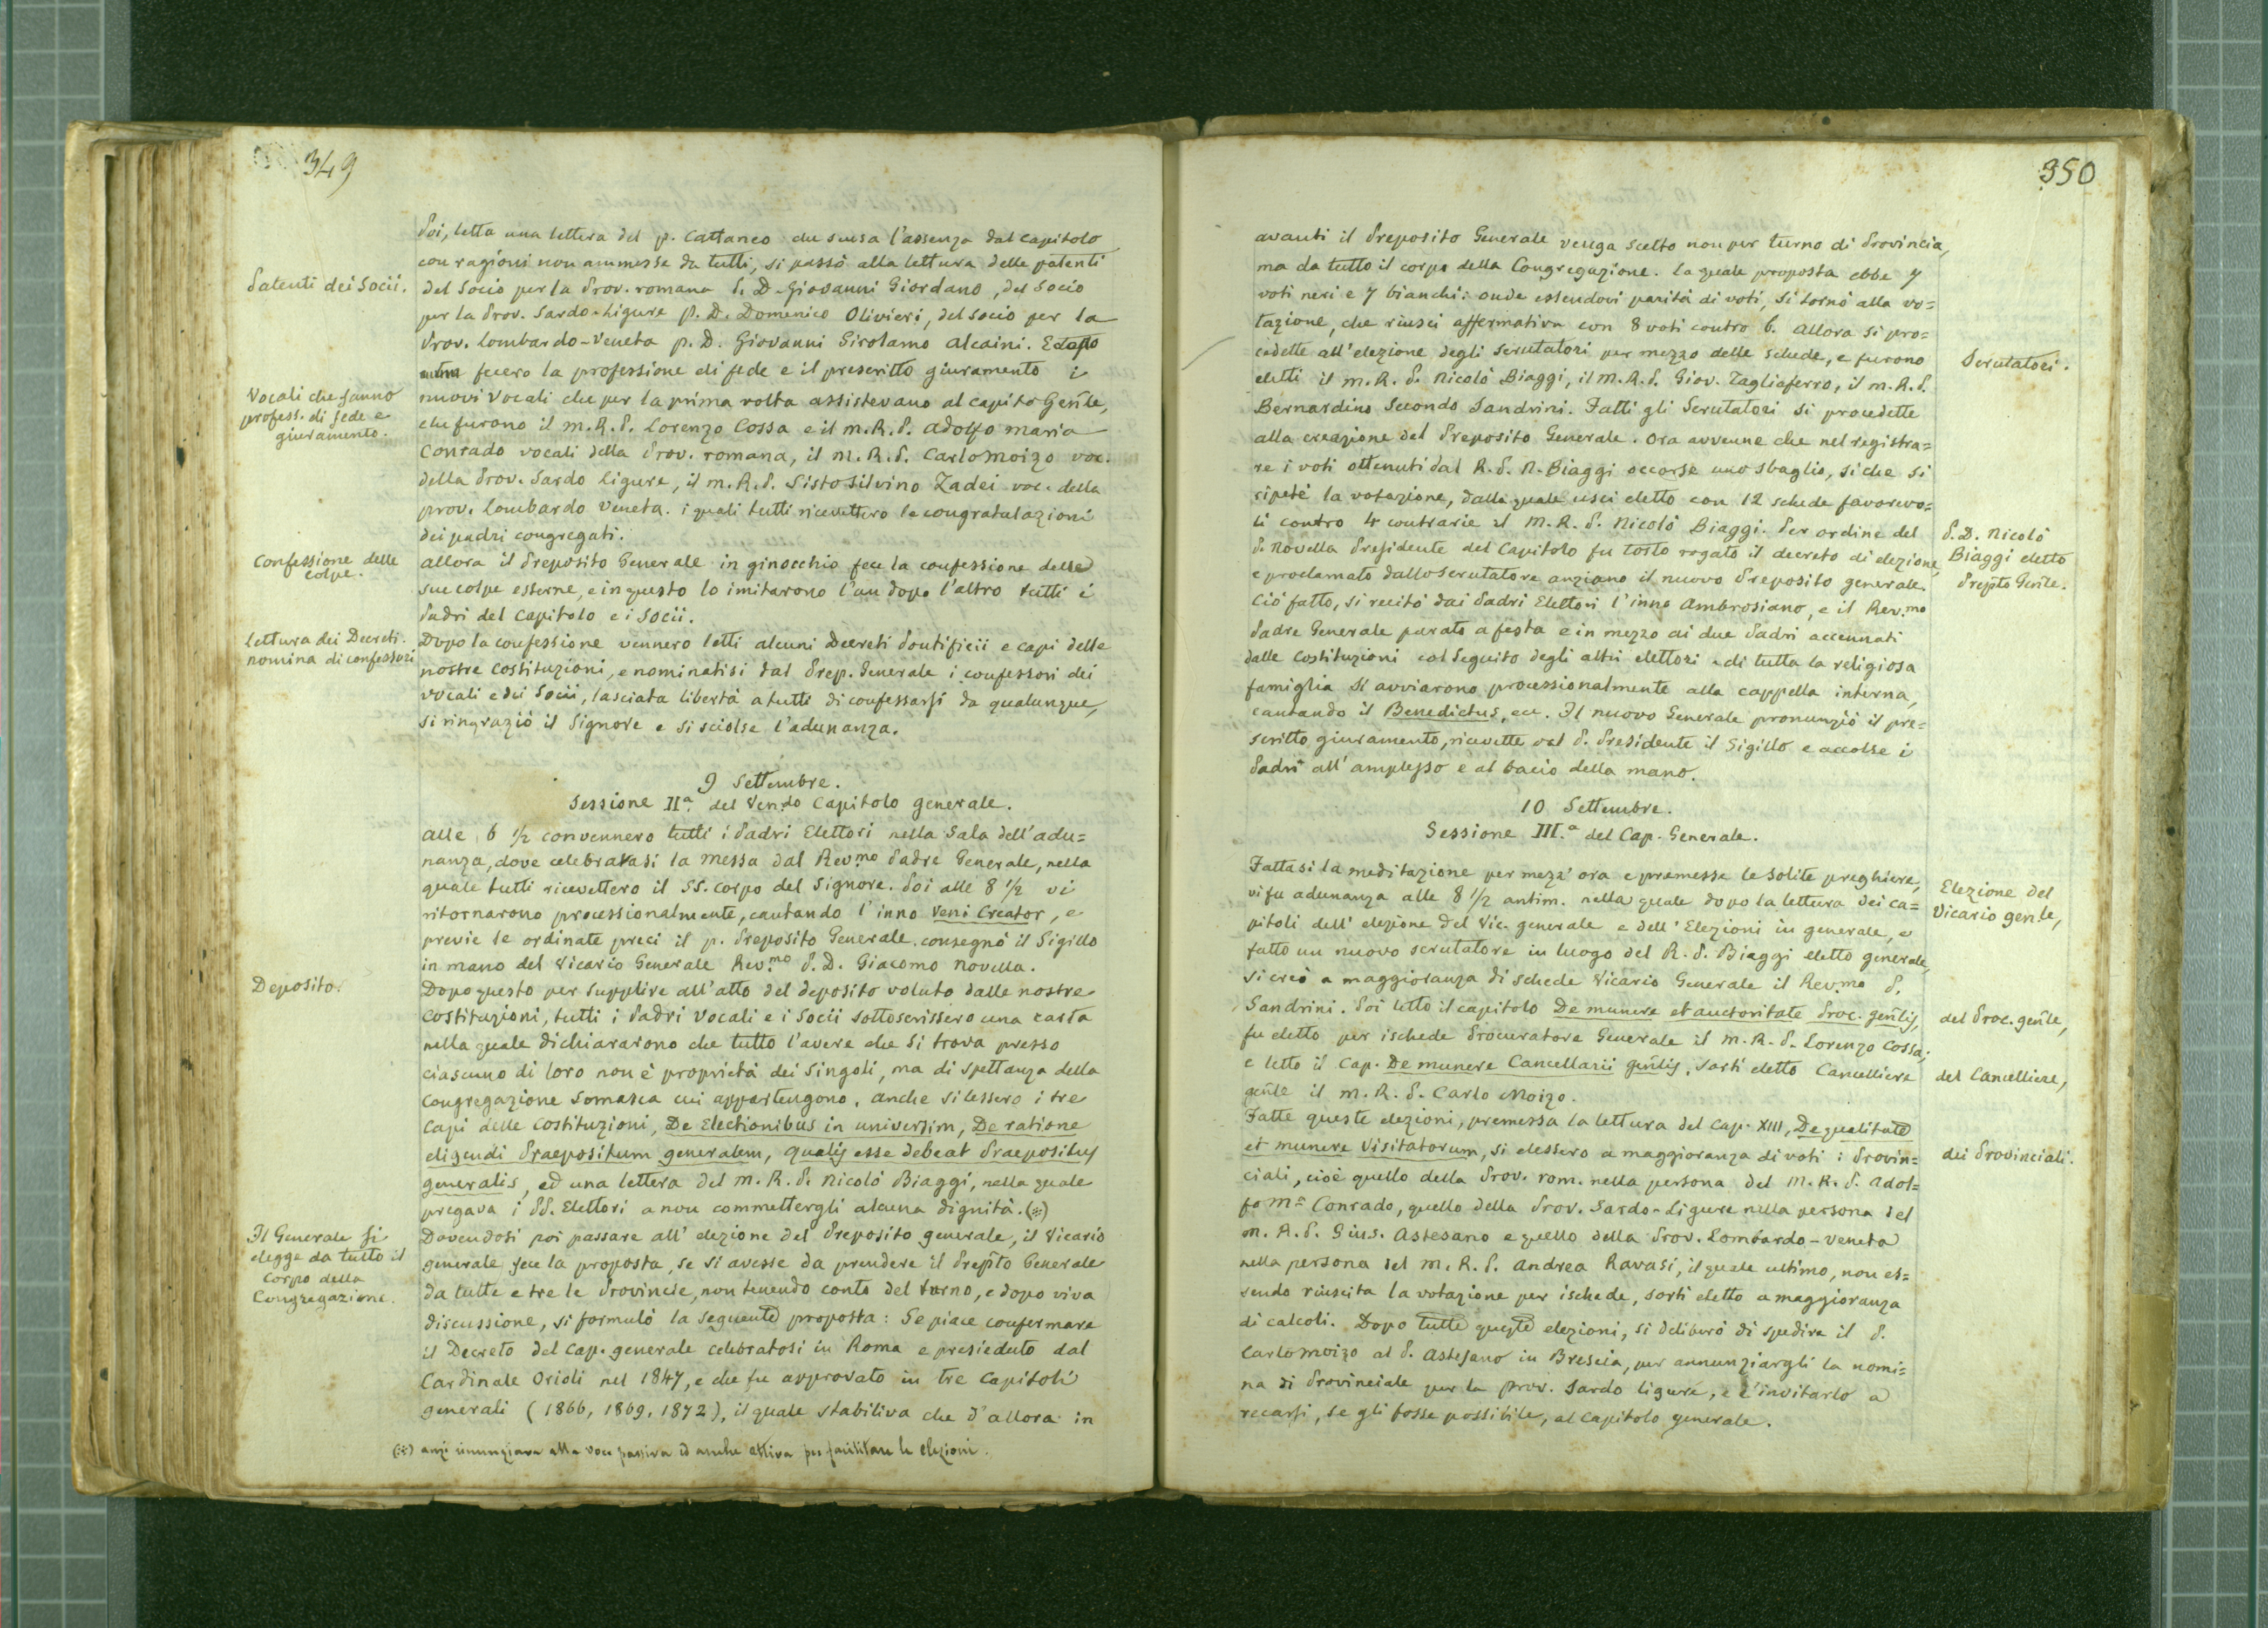 349
Poi, letta una lettera del p. Cattaneo che scusa l'assenza dal capitolo
con ragioni non ammesse da tutti, si passò alla lettura delle patenti
Patenti dei Socii.
del Socio per la Prov. romana P. D. Giovanni Giordano, del Socio
per la Prov. Sardo-Ligure P. D. Domenico Olivieri, del socio per la
Prov. Lombardo-Veneta p. D. Giovanni Girolamo Alcaini. E dopo
fecero la professione di fede e il prescritto giuramento i
Vocali che fanno
profess. di fede e
giuramento.
nuovi Vocali che per la prima volta assistevano al capito Genle,
che furono il M. R. P. Lorenzo Cossa e il M. R. P. Adolfo Maria
Conrado vocali della Prov. romana, il M. R. P. Carlo Moizo voc.
della Prov. Sardo Ligure, il M. R. P. Sisto Silvino Zadei voc. della
prov. Lombardo Veneta. i quali tutti ricevettero le congratulazioni
dei padri congregati.
Confessione delle
colpe.
allora il Preposito Generale in ginocchio fece la confessione delle
sue colpe esterne, e in questo lo imitarono l'un dopo l'altro tutti i
Padri del Capitolo e i Socii.
Lettura dei Decreti.
nomina di confessori
Dopo la confessione vennero letti alcuni Decreti Pontificii e capi delle
nostre Costituzioni, e nominatisi dal Prep. Generale i confessori dei
Vocali e dei Socii, lasciata libertà a tutti di confessarsi da qualunque,
si ringraziò il Signore e si sciolse l'adunanza.
9 Settembre.
Sessione IIa. del Ven.do Capitolo generale.
alle 6 1/2 convennero tutti i Padri Elettori nella Sala dell'adu=
nanza, dove celebravasi la Messa dal Rev.mo Padre Generale, nella
quale tutti ricevettero il SS. Corpo del Signore. Poi alle 8 1/2 vi
ritornarono processionalmente, cantando l'inno Veni Creator, e
previe le ordinate preci il p. Preposito Generale consegnò il Sigillo
in mano del Vicario Generale Rev.mo P. D. Giacomo Novella.
Deposito.
Dopo questo per supplire all'atto del deposito voluto dalle nostre
Costituzioni, tutti i Padri Vocali e i Socii sottoscrissero una carta
nella quale dichiararono che tutto l'avere che si trova presso
ciascuno di loro non è proprietà dei Singoli, ma di spettanza della
Congregazione Somasca cui appartengono. Anche si lessero i tre
Capi delle Costituzioni, De Electionibus in universim, De ratione
eligendi Praepositum generalem, Qualis esse debeat Praepositus
generalis, ed una lettera del M. R. P. Nicolò Biaggi, nella quale
pregava i PP. Elettori a non commettergli alcuna dignità. (※)
Il Generale si
elegge da tutto il
Corpo della
Congregazione.
Dovendosi poi passare all'elezione del Preposito generale, il Vicario
generale fece la proposta, se si avesse da prendere il Prepto Generale
da tutte e tre le Provincie, non tenendo conto del turno, e dopo viva
discussione, si formulò la seguente proposta: Se piace confermare
il Decreto del Cap. generale celebratosi in Roma e presieduto dal
Cardinale Orioli nel 1847, e che fu approvato in tre Capitoli
generali (1866, 1869, 1872), il quale stabiliva che d'allora in
(※) anzi rinunziava alla voce passiva ed anche attiva per facilitare le elezioni.
350
avanti il Preposito Generale venga scelto non per turno di Provincia,
ma da tutto il corpo della Congregazione. la quale proposta ebbe 7
voti neri e 7 bianchi: onde essendovi parità di voti, si tornò alla vo=
tazione, che riuscì affermativa con 8 voti contro 6. Allora si pro=
cedette all'elezione degli Scrutatori per mezzo delle schede, e furono
Scrutatori.
eletti il M. R. P. Nicolò Biaggi, il M. R. P. Giov. Tagliaferro, il M. R. P.
Bernardino Secondo Sandrini. Fatti gli Scrutatori si procedette
alla creazione del Preposito Generale. Ora avvenne che nel registra=
re i voti ottenuti dal R. P. N. Biaggi occorse uno sbaglio, sì che si
ripetè la votazione, dalla quale uscì eletto con 12 schede favorevo=
li contro 4 contrarie il M. R. P. Nicolò Biaggi. Per ordine del
P. D. Nicolò
Biaggi eletto
Prepto Genle.
P. Novella Presidente del Capitolo fu tosto rogato il decreto di elezione,
e proclamato dallo Scrutatore anziano il nuovo Preposito generale.
Ciò fatto, si recitò dai Padri Elettori l'inno Ambrosiano, e il Rev.mo
Padre Generale parato a festa e in mezzo ai due Padri accennati
dalle Costituzioni col Seguito degli altri elettori e di tutta la religiosa
famiglia si avviarono processionalmente alla cappella interna,
cantando il Benedictus, ecc. Il nuovo Generale pronunziò il pre=
scritto giuramento, ricevette dal P. Presidente il Sigillo e accolse i
Padri all'amplesso e al bacio della mano.
10 Settembre.
Sessione III.a del Cap. Generale.
Fattasi la meditazione per mezz'ora e premesse le solite preghiere,
Elezione del
Vicario genle,
vi fu adunanza alle 8 1/2 antim. nella quale dopo la lettura dei ca=
pitoli dell'elezione del Vic. generale e dell'Elezioni in generale, e
fatto un nuovo scrutatore in luogo del R. P. Biaggi eletto generale,
si creò a maggioranza di schede Vicario Generale il Rev.mo P.
Sandrini. Poi letto il capitolo De munere et auctoritate Proc. genlis,
del Proc. genle,
fu eletto per ischede Procuratore Generale il M. R. P. Lorenzo Cossa;
e letto il Cap. De munere Cancellarii genlis, sortì eletto Cancelliere
del Cancelliere,
genle il M. R. P. Carlo Moizo.
Fatte queste elezioni, premessa la lettura del Cap. XIII, De qualitate
et munere Visitatorum, si elessero a maggioranza di voti i Provin=
dei Provinciali.
ciali, cioè quello della Prov. rom. nella persona del M. R. P. Adol=
fo Ma Conrado, quello della Prov. Sardo-Ligure nella persona del
M. R. P. Gius. Astesano e quello della Prov. Lombardo-Veneta
nella persona del M. R. P. Andrea Ravasi, il quale ultimo, non es=
sendo riuscita la votazione per ischede, sortì eletto a maggioranza
di calcoli. Dopo tutte queste elezioni, si deliberò di spedire il P.
Carlo Moizo al P. Astesano in Brescia, per annunziargli la nomi=
na di Provinciale per la Prov. Sardo ligure, e d'invitarlo a
recarsi, se gli fosse possibile, al Capitolo generale.